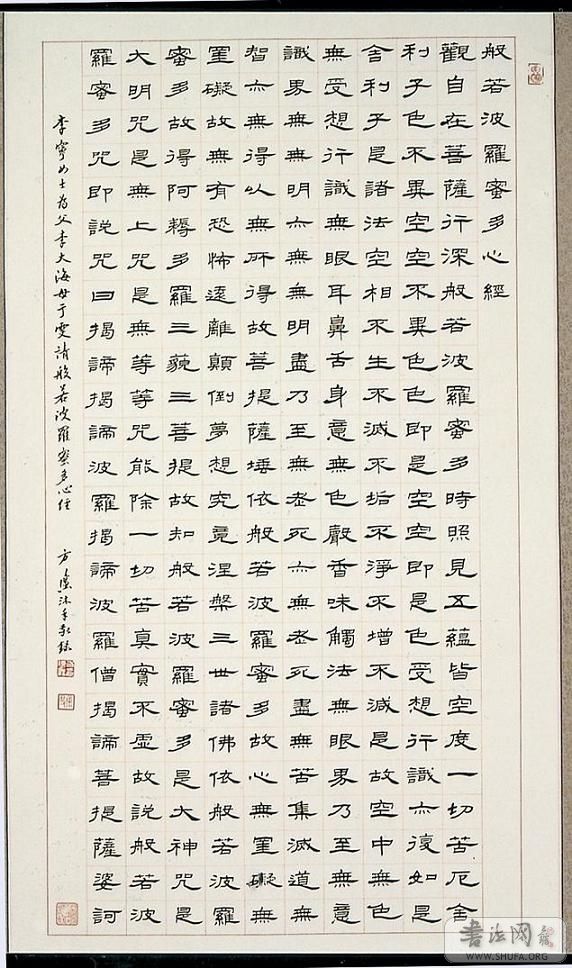 般若波羅蜜多心經
觀自在菩薩行深般若波羅蜜多時照見五蘊皆空度一切苦厄舍
利子色不異空空不異色色即是空空即是色受想行識亦復如是
舍利子是諸法空相不生不滅不垢不淨不增不減是故空中無色
無受想行識無眼耳鼻舌身意無色聲香味觸法無眼界乃至無意
識界無無明亦無無明盡乃至無老死亦無老死盡無苦集滅道無
智亦無得以無所得故菩提薩埵依般若波羅蜜多故心無罣礙無
罣礙故無有恐怖遠離顛倒夢想究竟涅槃三世諸佛依般若波羅
蜜多故得阿耨多羅三藐三菩提故知般若波羅蜜多是大神咒是
大明咒是無上咒是無等等咒能除一切苦真實不虛故說般若波
羅蜜多咒即說咒曰揭諦揭諦波羅揭諦波羅僧揭諦菩提薩婆訶
李寧女士為父李大海母于雯請般若波羅蜜多心經 方 沐手敬録
書法网
WWW.SHUFA.ORG